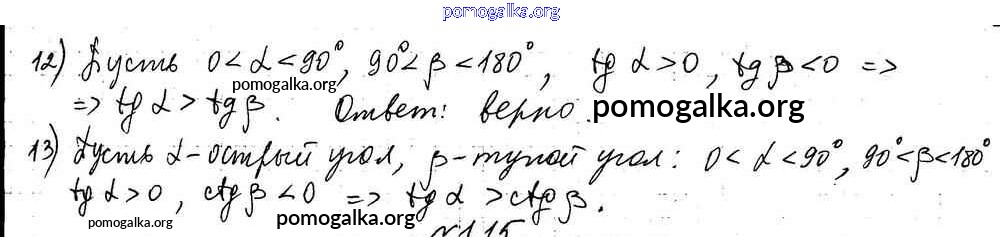 pomogalka.org
12) Пусть 0 < α < 90°, 90° < β < 180°, tg α > 0, tg β < 0 =>
pomogalka.org
=> tg α > tg β. Ответ: верно.
pomogalka.org
13) Пусть α - острый угол, β - тупой угол: 0 < α < 90°, 90° < β < 180°
tg α > 0, ctg β < 0 => tg α > ctg β.
pomogalka.org
pomogalka.org
№115